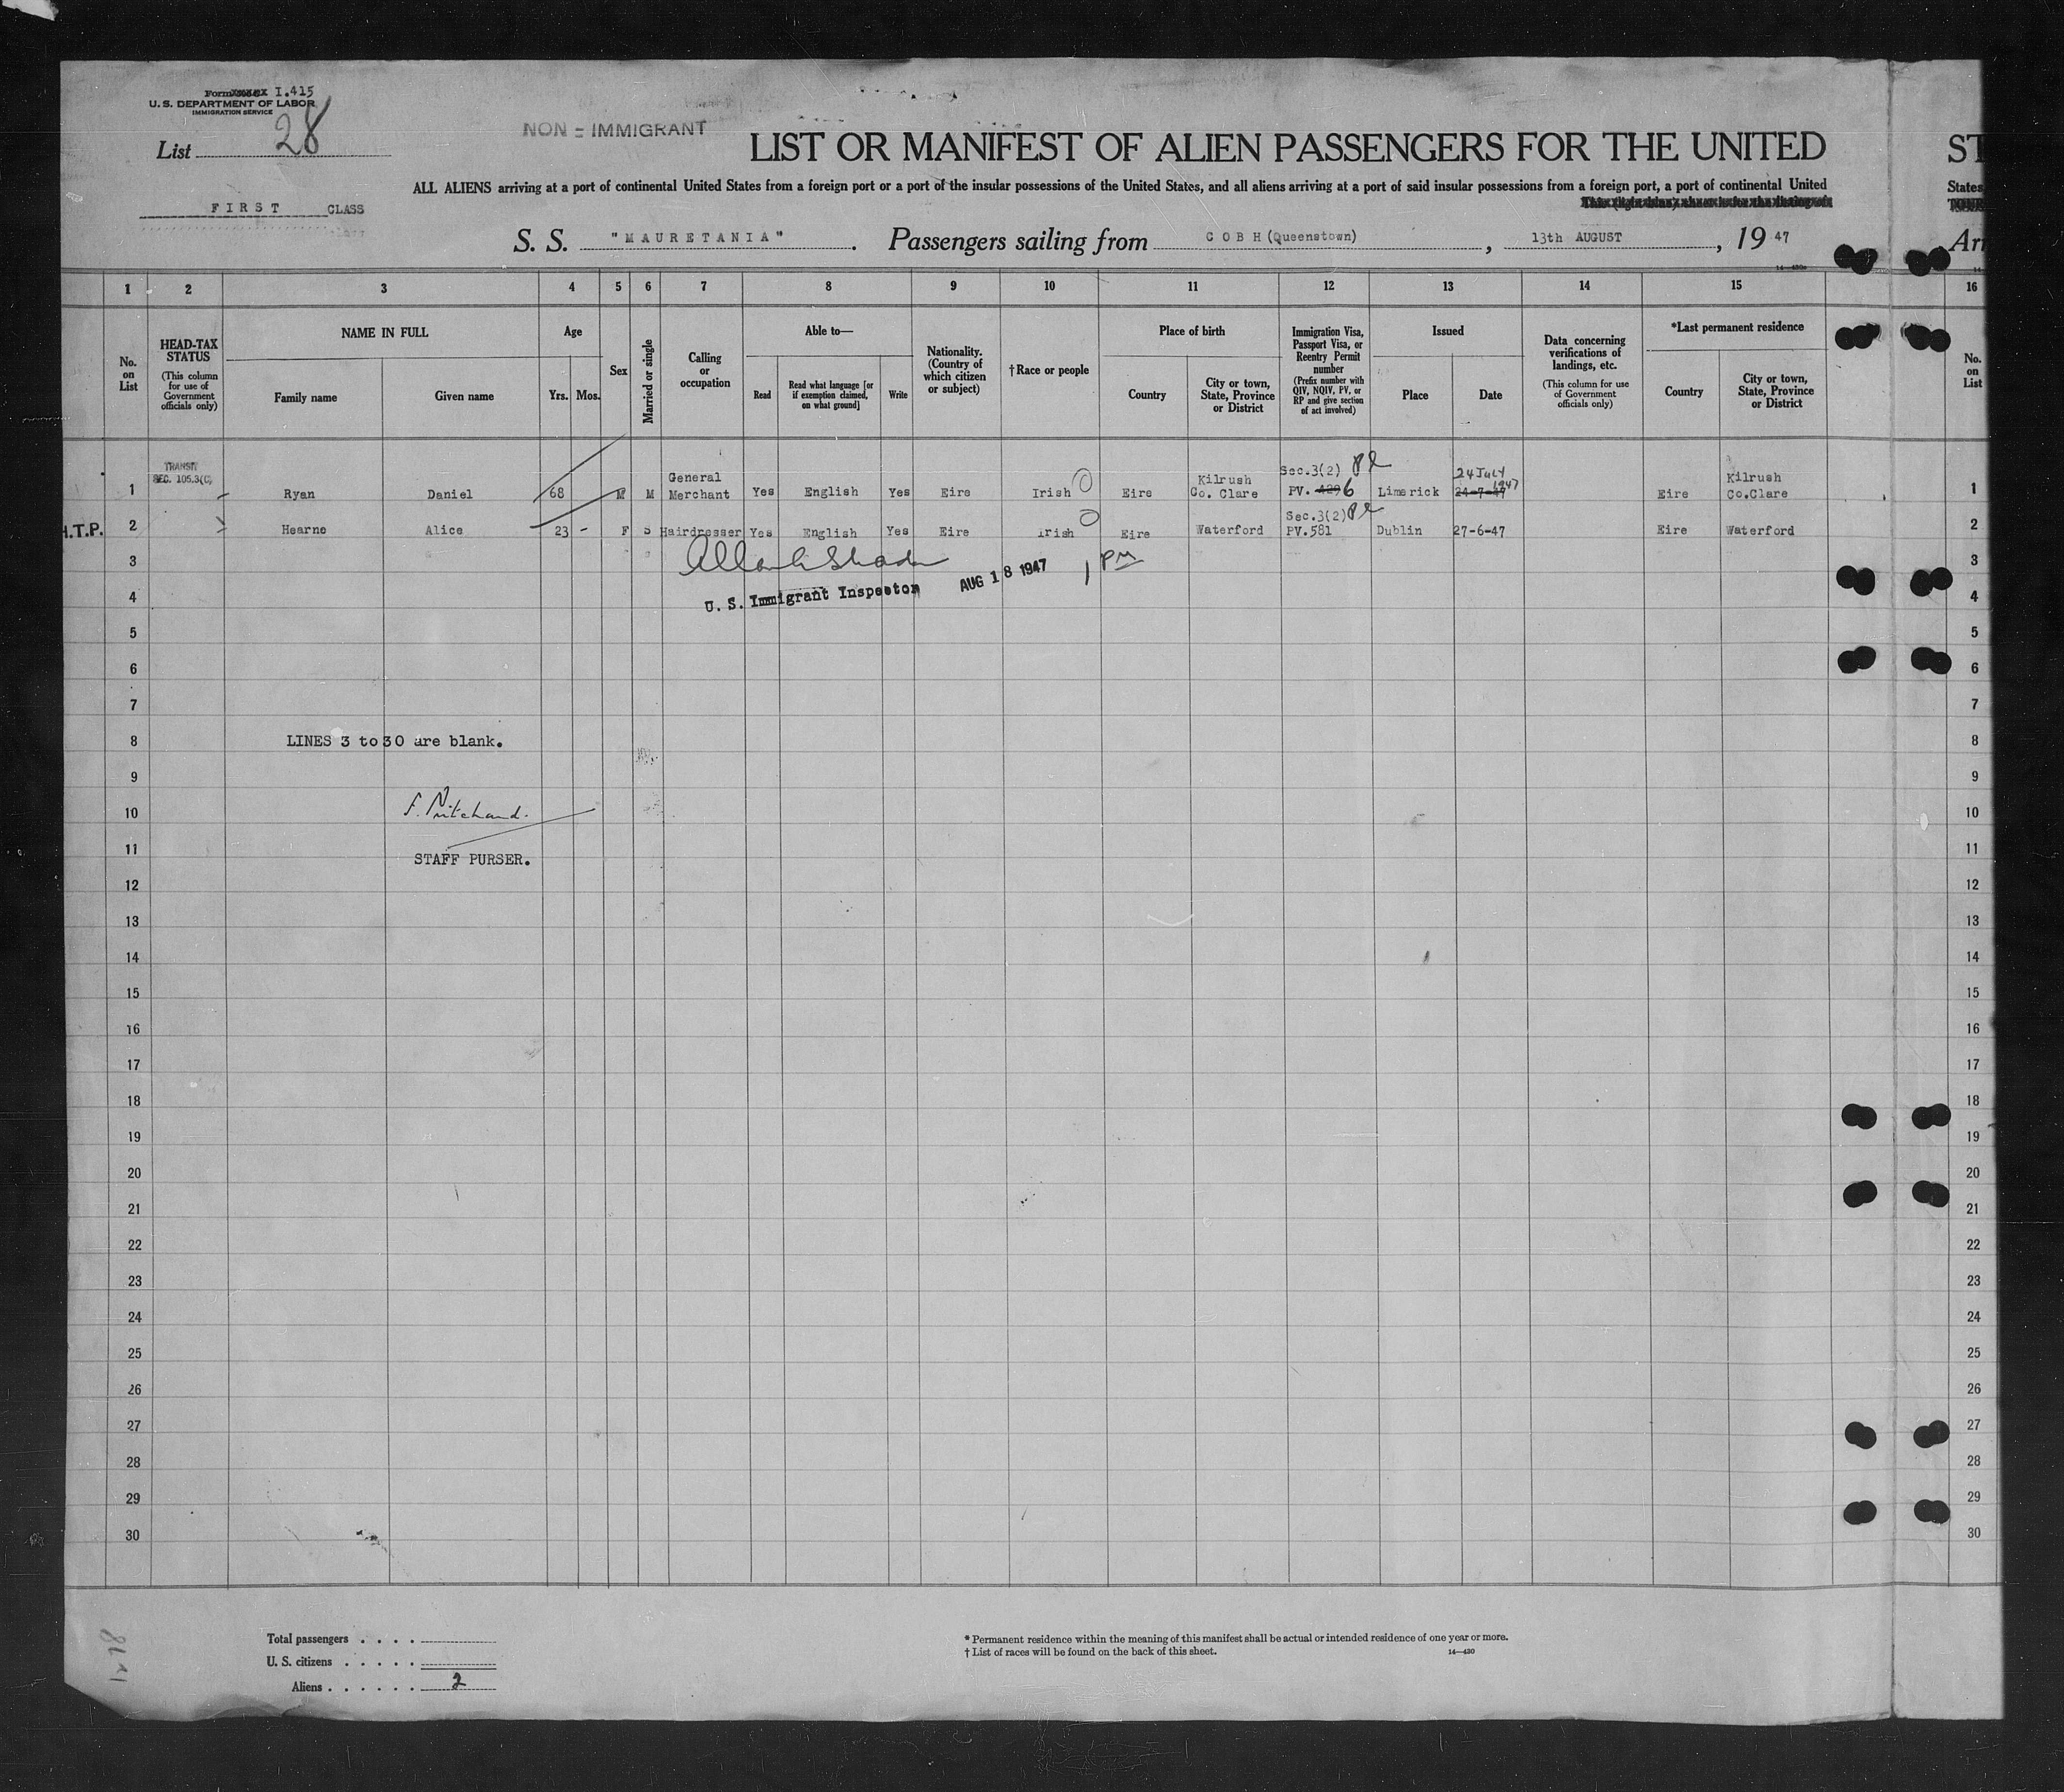 Form I.415
U. S. DEPARTMENT OF LABOR
IMMIGRATION SERVICE
List 28
NON-IMMIGRANT
LIST OR MANIFEST OF ALIEN PASSENGERS FOR THE UNITED
ST
ALL ALIENS arriving at a port of continental United States from a foreign port or a port of the insular possessions of the United States, and all aliens arriving at a port of said insular possessions from a foreign port, a port of continental United
States
FIRST CLASS
S. S. "MAURETANIA". Passengers sailing from COBH (Queenstown), 13th AUGUST, 19 47
Arr
1 2 3 4 5 6 7 8 9 10 11 12 13 14 15 16
No. on List
HEAD-TAX STATUS
(This column for use of Government officials only)
NAME IN FULL
Family name
Given name
Age
Yrs.
Mos.
Sex
Married or single
Calling or occupation
Able to—
Read
Read what language [or if exemption claimed, on what ground]
Write
Nationality. (Country of which citizen or subject)
†Race or people
Place of birth
Country
City or town, State, Province or District
Immigration Visa, Passport Visa, or Reentry Permit number
(Prefix number with QIV, NQIV, PV, or RP and give section of act involved)
Issued
Place
Date
Data concerning verifications of landings, etc.
(This column for use of Government officials only)
*Last permanent residence
Country
City or town, State, Province or District
No. on List
TRANSIT
SEC. 105.3(C)
1 Ryan Daniel 68 M M General Merchant Yes English Yes Eire Irish Eire Kilrush Co. Clare Sec.3(2) PV. 429 6 Limerick 24-7-47 24 July 1947 Eire Kilrush Co.Clare 1
H.T.P. 2 Hearne Alice 23 - F S Hairdresser Yes English Yes Eire Irish Eire Waterford Sec.3(2) PV.581 Dublin 27-6-47 Eire Waterford 2
3 3
U. S. Immigrant Inspector AUG 18 1947 1 PM
4 4
5 5
6 6
7 7
8 LINES 3 to 30 are blank. 8
9 9
10 F. Pritchard. 10
11 STAFF PURSER. 11
12 12
13 13
14 14
15 15
16 16
17 17
18 18
19 19
20 20
21 21
22 22
23 23
24 24
25 25
26 26
27 27
28 28
29 29
30 30
Total passengers . . . .
U. S. citizens . . . . .
Aliens . . . . . . 2
* Permanent residence within the meaning of this manifest shall be actual or intended residence of one year or more.
† List of races will be found on the back of this sheet.
14—430